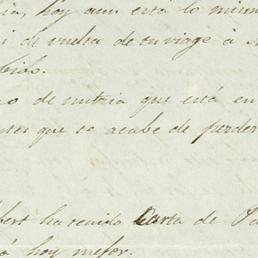 ia, hoy aun esta lo mismo
i de vuelta de tu viage á
bido.
o de nutria que está en
ntes que se acabe de perder
bert ha venido Carta de
á hoy mejor.